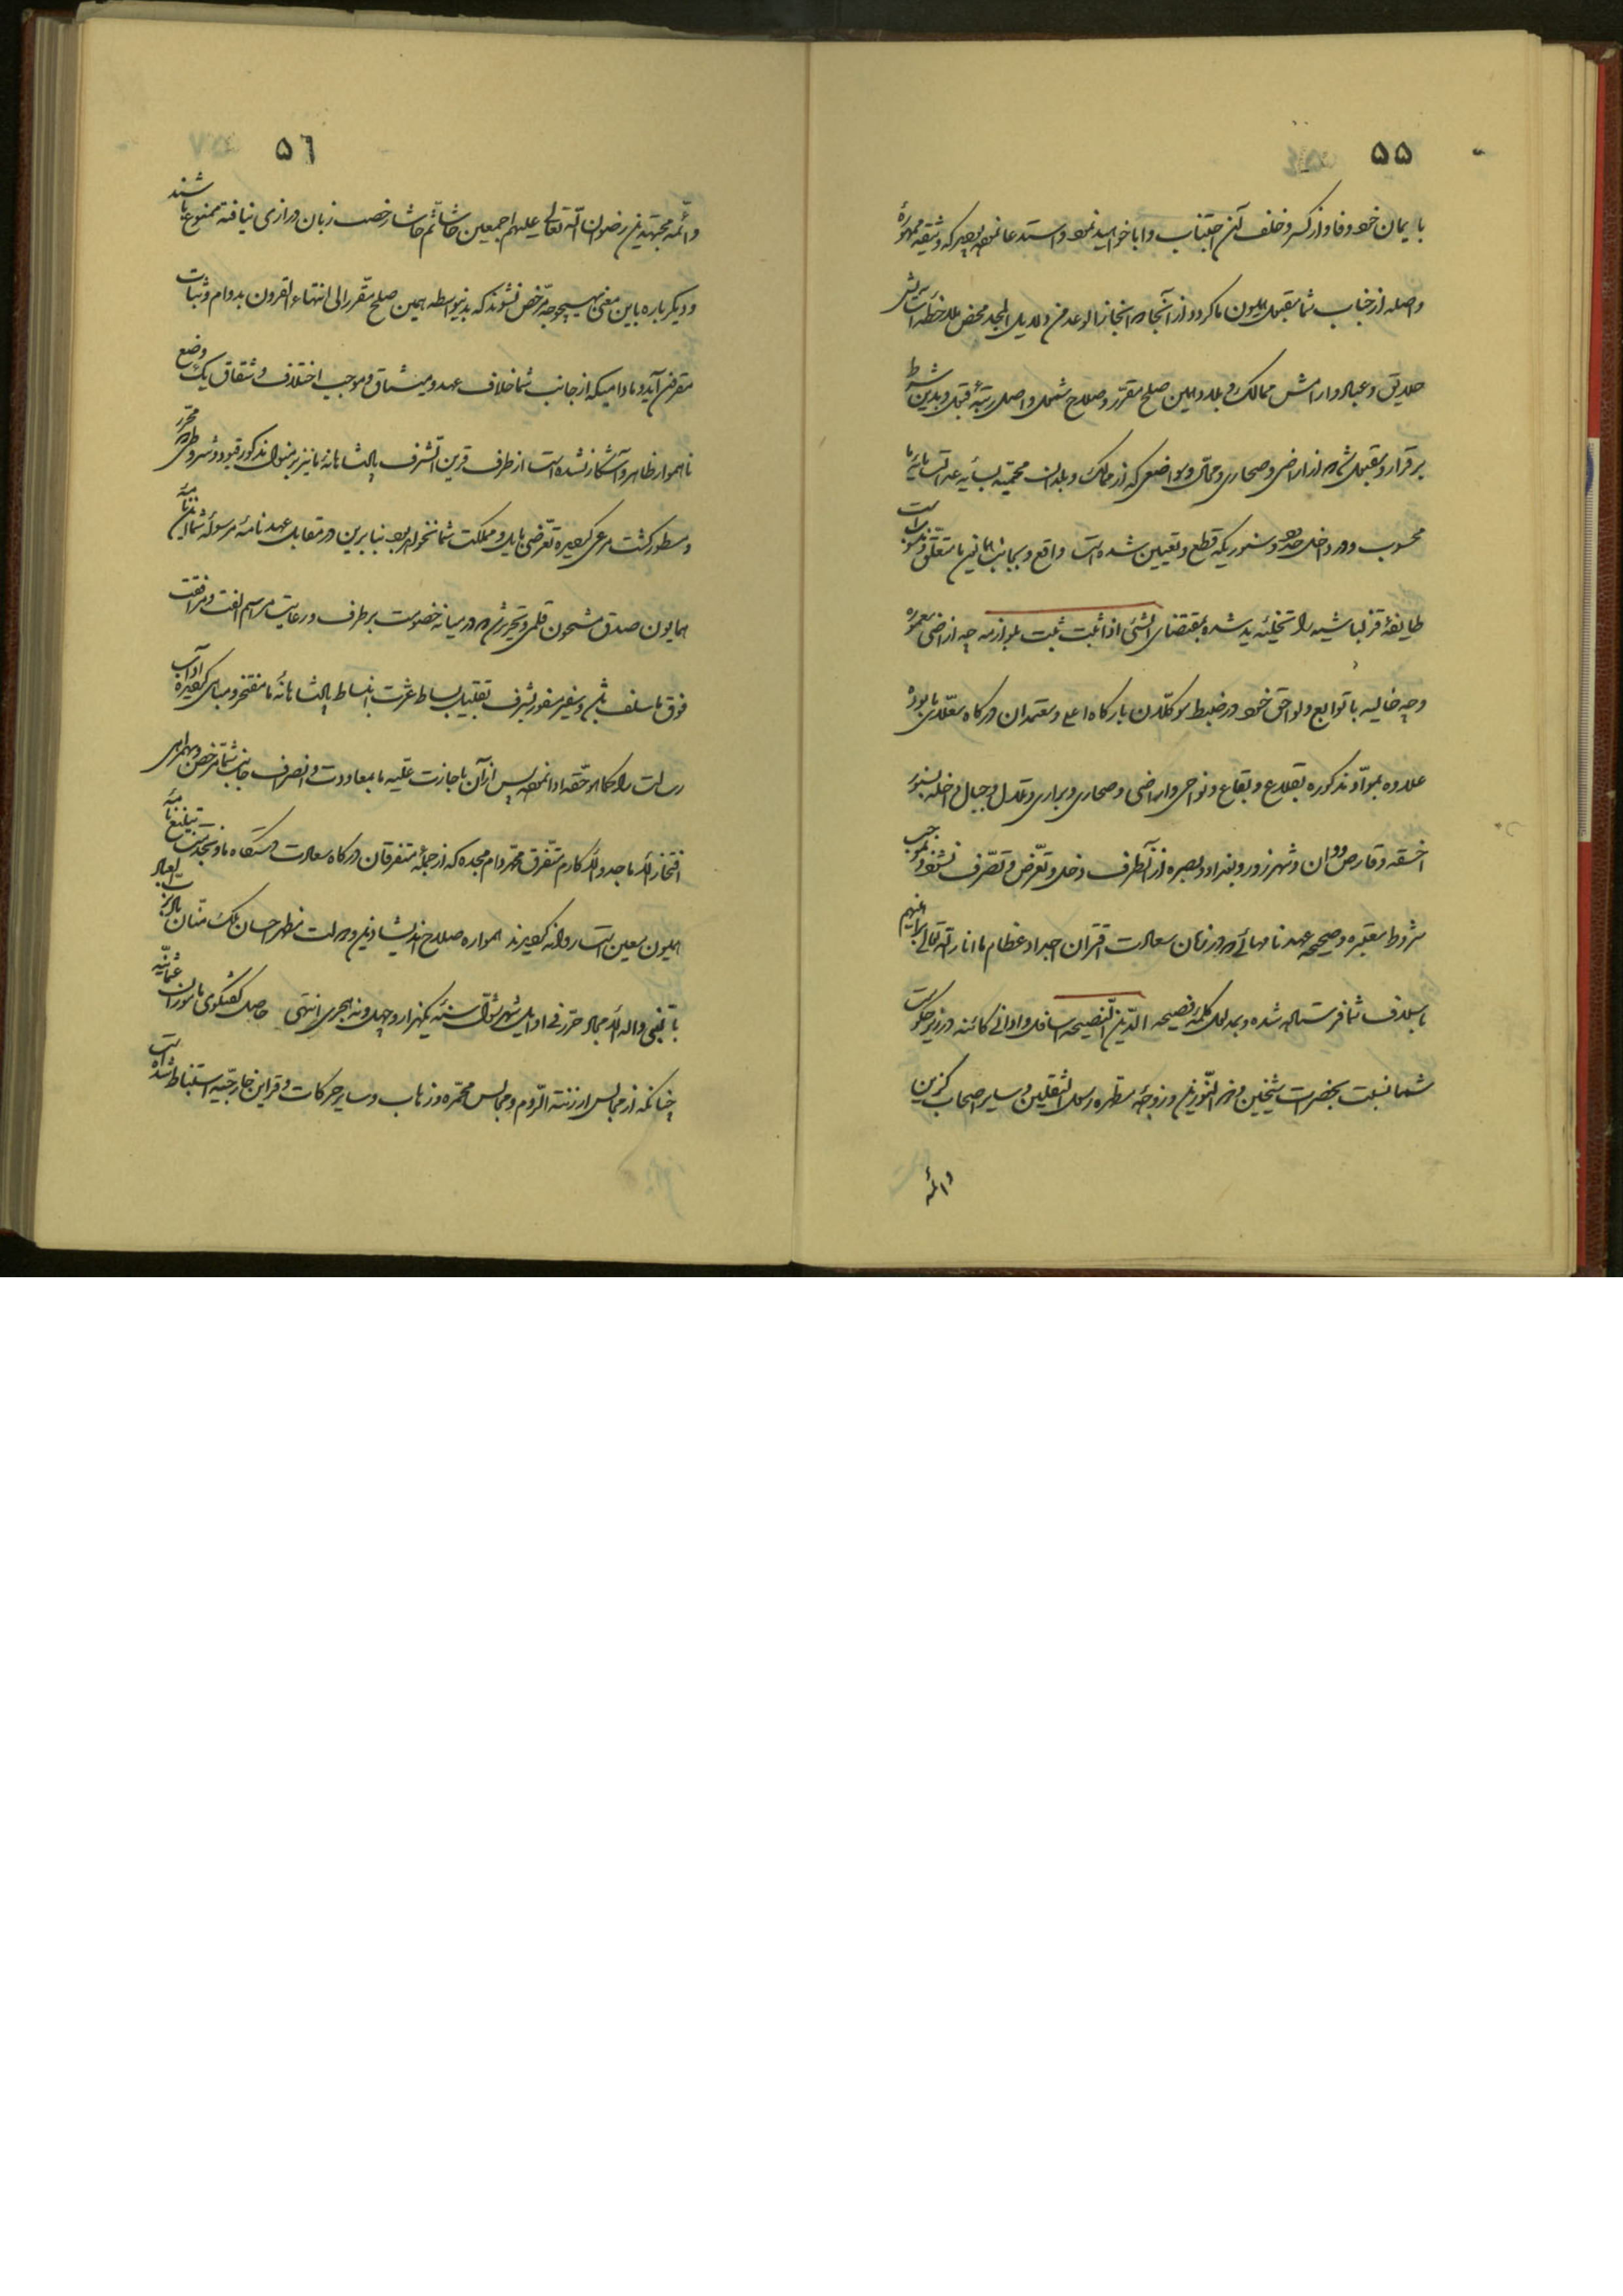 ۵۵
بایمان خود وفا و از کسر و خلف آن اجتناب و ابا خواهید نمود و استدعا نموده بودید که وثیقه ممهوره
واصله از جناب شما مقبول همایون ما کردد و از آنجا که انجاز الوعد من دلایل المجد محض ملاحظه آسایش
خلایق و عباد و آرامش ممالک و بلاد و همین صلح مقرر و صلاح مشمول واصل رتبه قبول و بدین شرط
برقرار و مقبول شد که از اراضی و صحاری و محال و مواضعی که از ممالک و بلدان محمیه
محسوب و در داخل حدود و سنوریکه قطع و تعیین شده است واقع و بجانب همایون ما متعلق و منسوب است
طایفه قزلباشیه را تخلیه ید شده بمقتضای الشئ اذا ثبت ثبت بلوازمه چه اراضی معموره
و چه خالیه با توابع و لواحق خود در ضبط موکلان بارکاه اعلی و معتمدان درکاه معلای ما بوده
علاوه بمواد مذکوره بقلاع و بقاع و نواحی و اراضی و صحاری و براری و تلال و جبال داخله بسنور
اخسقه و قارص و وان و شهرزور و بغداد و بصره از آنطرف دخل و تعرض و تصرف نشود و بموجب
شروط معتبره و صحیحه عهدنامهائی که در زمان سعادت اقتران اجداد عظام ما انار الله تعالی براهینهم
باسلاف شما فرستاده شده و بمدلول کلمه فصیحه الدین النصیحه اسافل و ادانی کائنه در زیر حکومت
شما نسبت بحضرت شیخین و ذی النورین و زوجه مطهره رسول الثقلین و سایر اصحاب کزین
وائمه
۵٦
وائمه مجتهدین رضوان الله تعالی علیهم اجمعین حاشا ثم حاشا رخصت زبان درازی نیافته ممنوع باشند
و دیکر باره باین معنی بهیچوجه مرخص نشوند که بدینواسطه همین صلح مقرر الی انتهاء القرون بدوام و ثبات
مقرون آید و مادامیکه از جانب شما خلاف عهد و میثاق و موجب اختلاف و شقاق یک وضع
ناهموار ظاهر و آشکار نشده است از طرف قرین الشرف پادشاهانه ما نیز بر منوال مذکور قیود و شروطی که محرر
و مسطور کشت مرعی کردیده تعرضی بایل و مملکت شما نخواهد بود بنابرین در مقابل عهدنامه مرسوله شما این نامه
همایون صدق مشحون قلمی و تحریر شد که در میانه خصومت برطرف و رعایت مراسم الفت و مرافقت
فوق ماسلف باشد و سفیر مسفور بشرف تقبیل بساط عزت انبساط پادشاهانه ما مفتخر و مباهی کردیده آداب
رسالت را کما هو حقه ادا نموده پس از آن باجازت علیه ما بمعاودت و انصراف جانب شما مرخص و بهمراهی
افتخار الاماجد و الاکارم متفرق محمد دام مجده که از جمله متفرقان درکاه سعادت دستکاه ما و بجهت تبلیغ نامه
همایون معین است روانه کردیدند همواره صلاح اندیشان دین و دولت مظهر احسان ملک منان باد برب العباد
بالنبی و آله الامجاد حرر فی اوایل شهر شوال سنه یکهزار و چهل و نه هجری انتهی حاصل کفتکوی مأموران عثمانیه
چنانکه از مجالس ارزنة الروم و مجالس محمره و زهاب و سایر حرکات و قراین خارجیه استنباط شده است